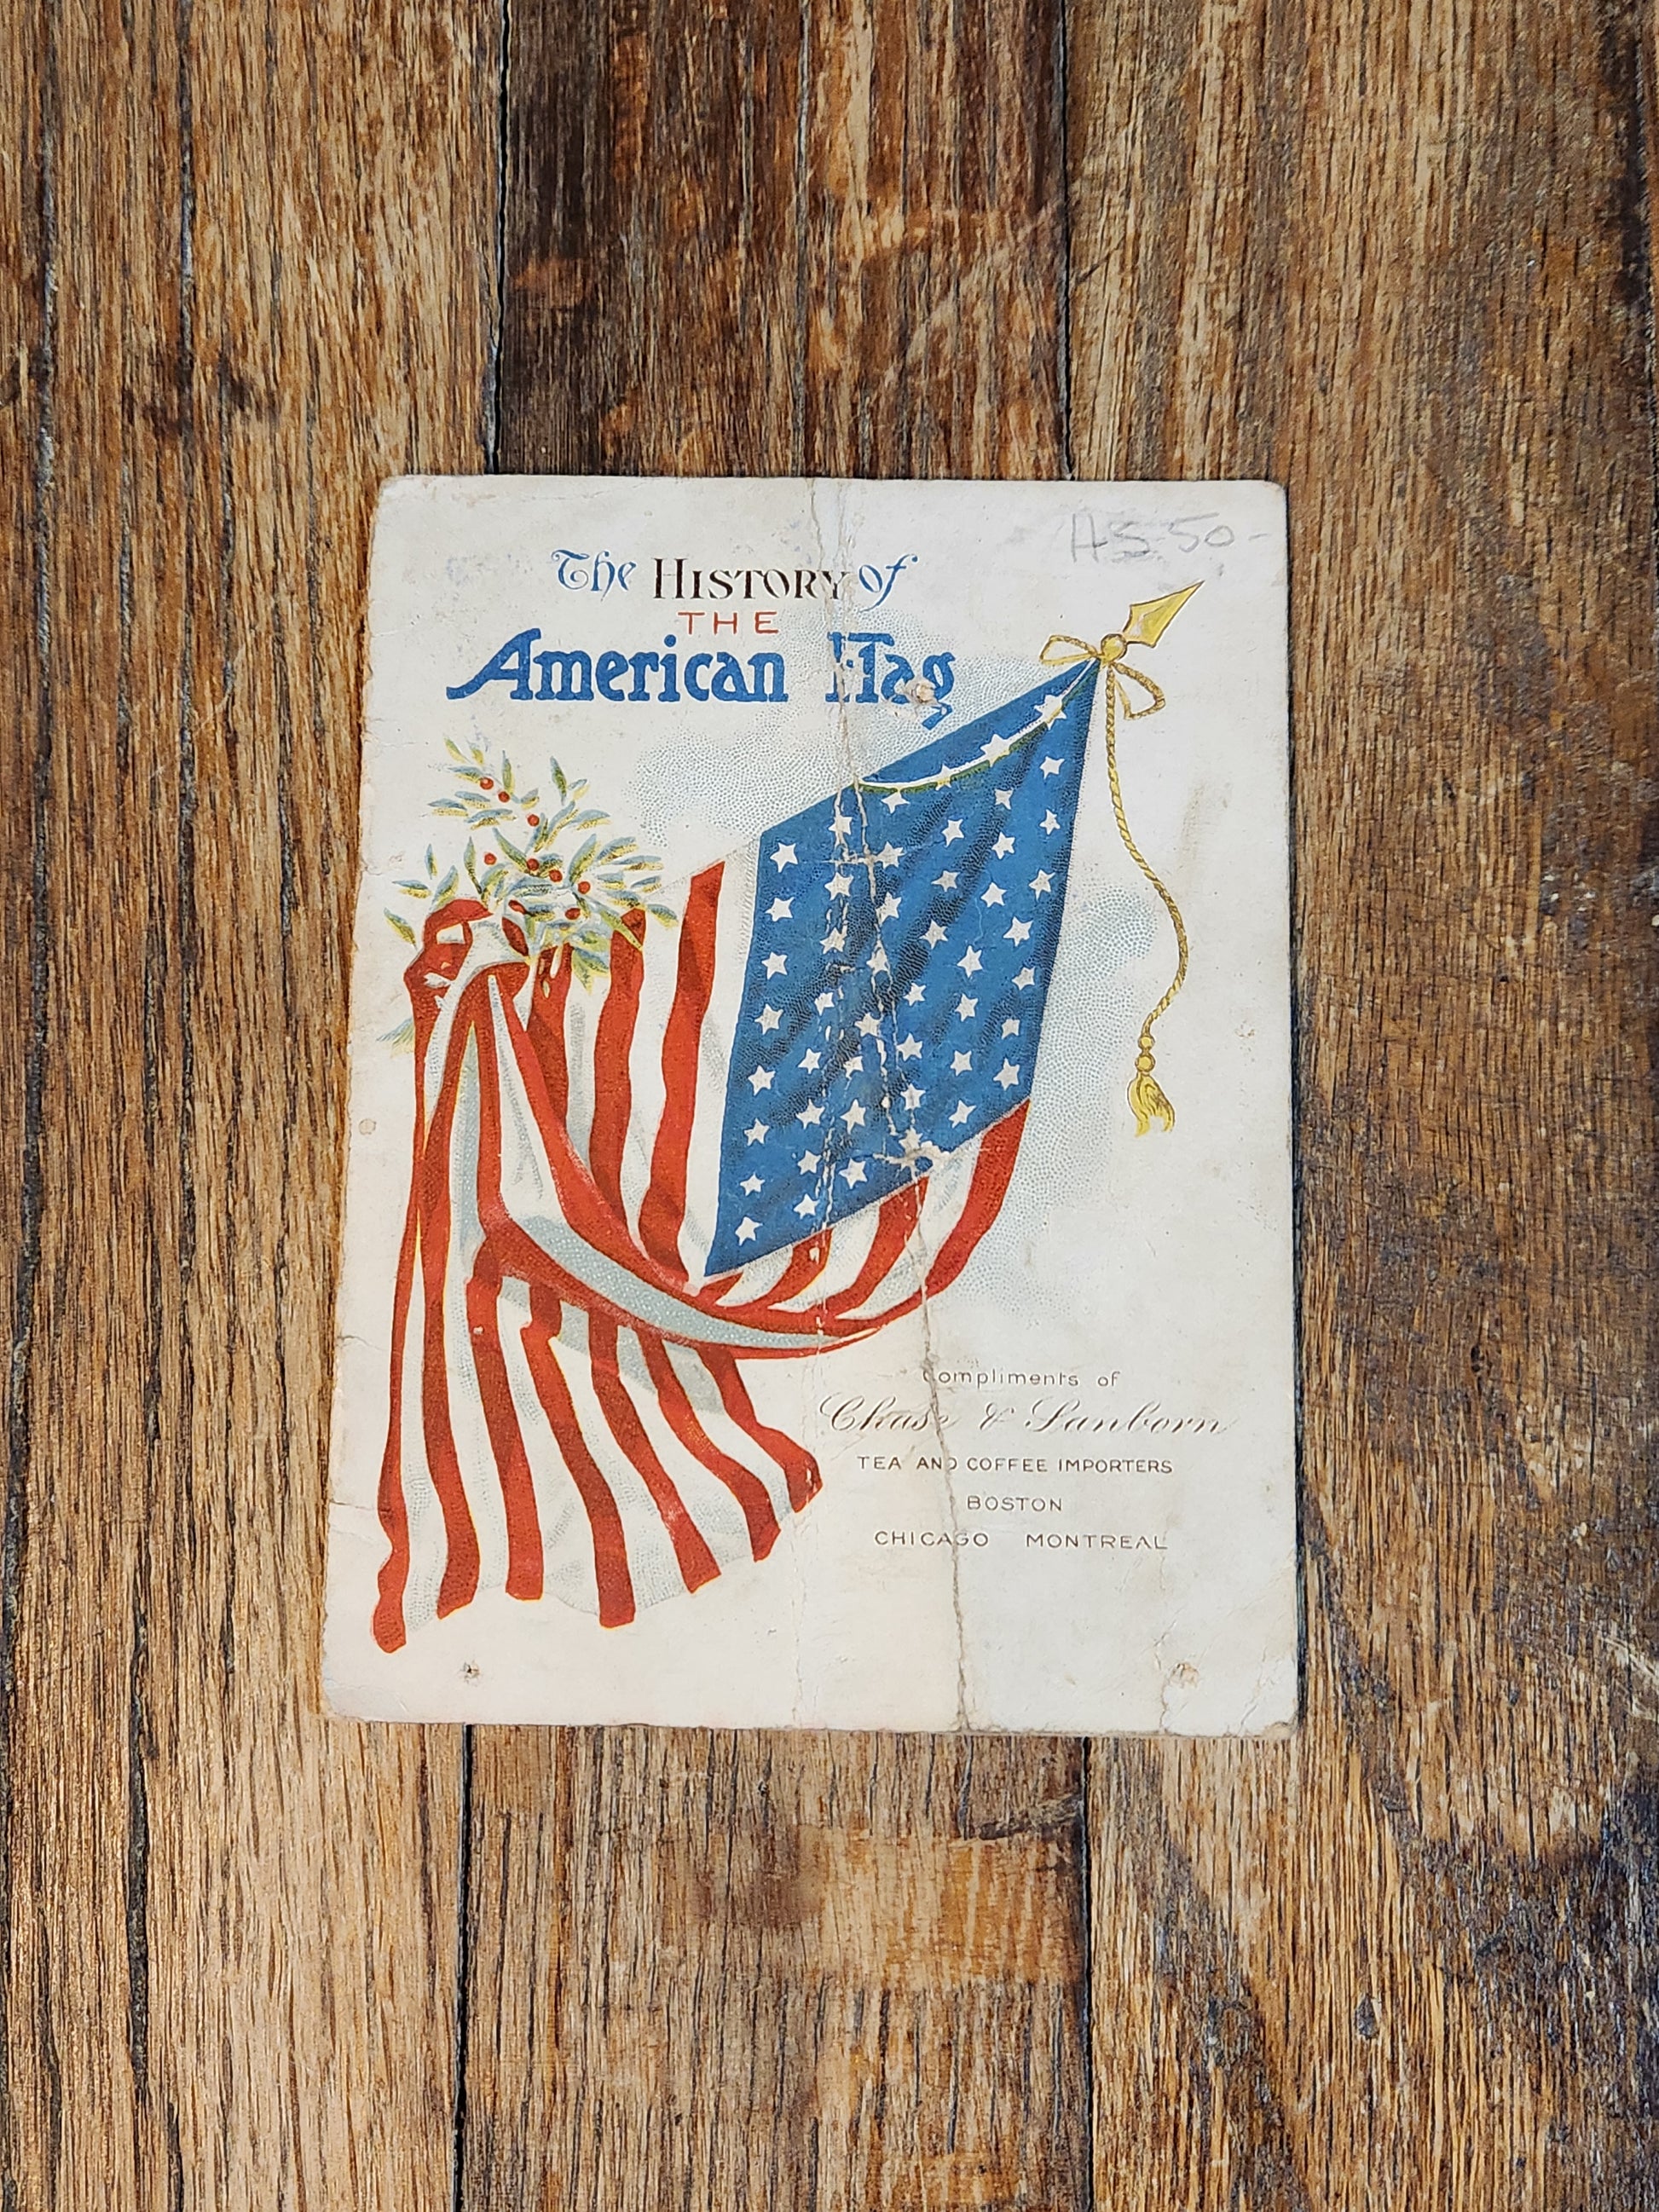 AS 50-
The HISTORY of
THE
American Flag
Compliments of
Chase & Sanborn
TEA AND COFFEE IMPORTERS
BOSTON
CHICAGO MONTREAL